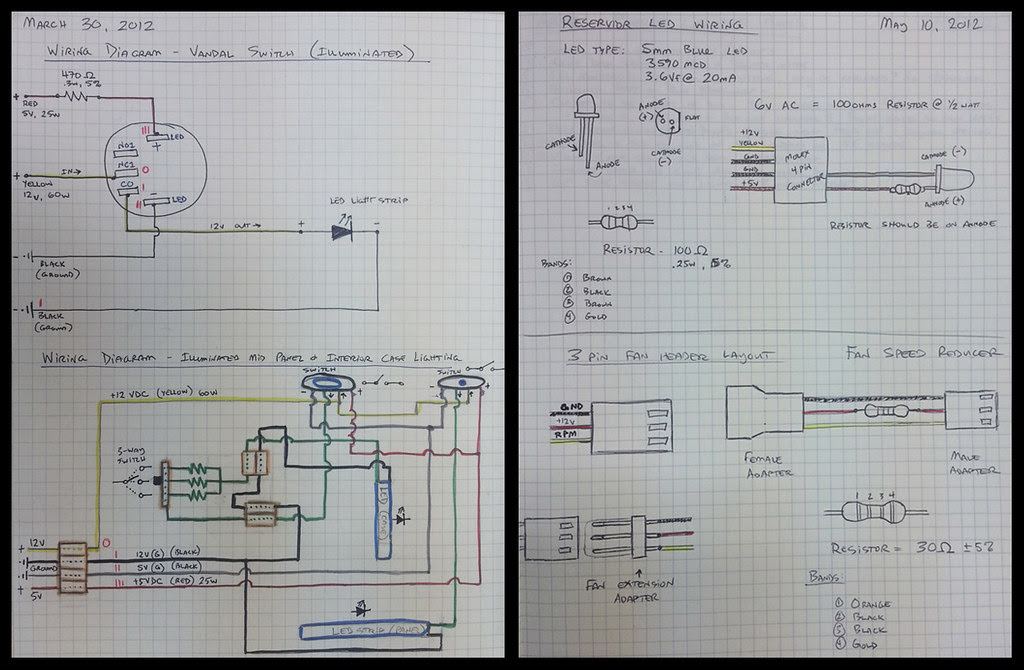 MARCH 30, 2012
WIRING DIAGRAM - VANDAL SWITCH (ILLUMINATED)
470Ω
.3W, 5%
+
RED
5V, 25W
III
LED
+
NO1
NC1
O
IN→
CO
I
+
YELLOW
12V, 60W
-
LED
II
LED LIGHT STRIP
12V OUT→
+
-
BLACK
(GROUND)
I
BLACK
(GROUND)
WIRING DIAGRAM - ILLUMINATED MID PANEL & INTERIOR CASE LIGHTING
SWITCH
SWITCH
+12 VDC (YELLOW) 60W
3-WAY
SWITCH
LED (CONO)
12V
O
+
GROUND
I
12V(G) (BLACK)
II
5V(G) (BLACK)
III
+5VDC (RED) 25W
+
5V
LED STRIP / PANEL
RESERVIOR LED WIRING
MAY 10, 2012
LED TYPE: 5MM BLUE LED
3590 MCD
3.6VF @ 20MA
6V AC = 100OHMS RESISTOR @ 1/2 WATT
ANODE
(+)
FLAT
CATHODE
(-)
CATHODE
ANODE
+12V
YELLOW
GND
GND
+5V
MOLEX
4 PIN
CONNECTOR
CATHODE (-)
ANODE (+)
RESISTOR SHOULD BE ON ANODE
1 2 3 4
RESISTOR - 100Ω
.25W, 5%
BANDS:
① BROWN
② BLACK
③ BROWN
④ GOLD
3 PIN FAN HEADER LAYOUT
FAN SPEED REDUCER
GND
+12V
RPM
FEMALE
ADAPTER
MALE
ADAPTER
FAN EXTENSION
ADAPTER
1 2 3 4
RESISTOR = 30Ω ±5%
BANDS:
① ORANGE
② BLACK
③ BLACK
④ GOLD